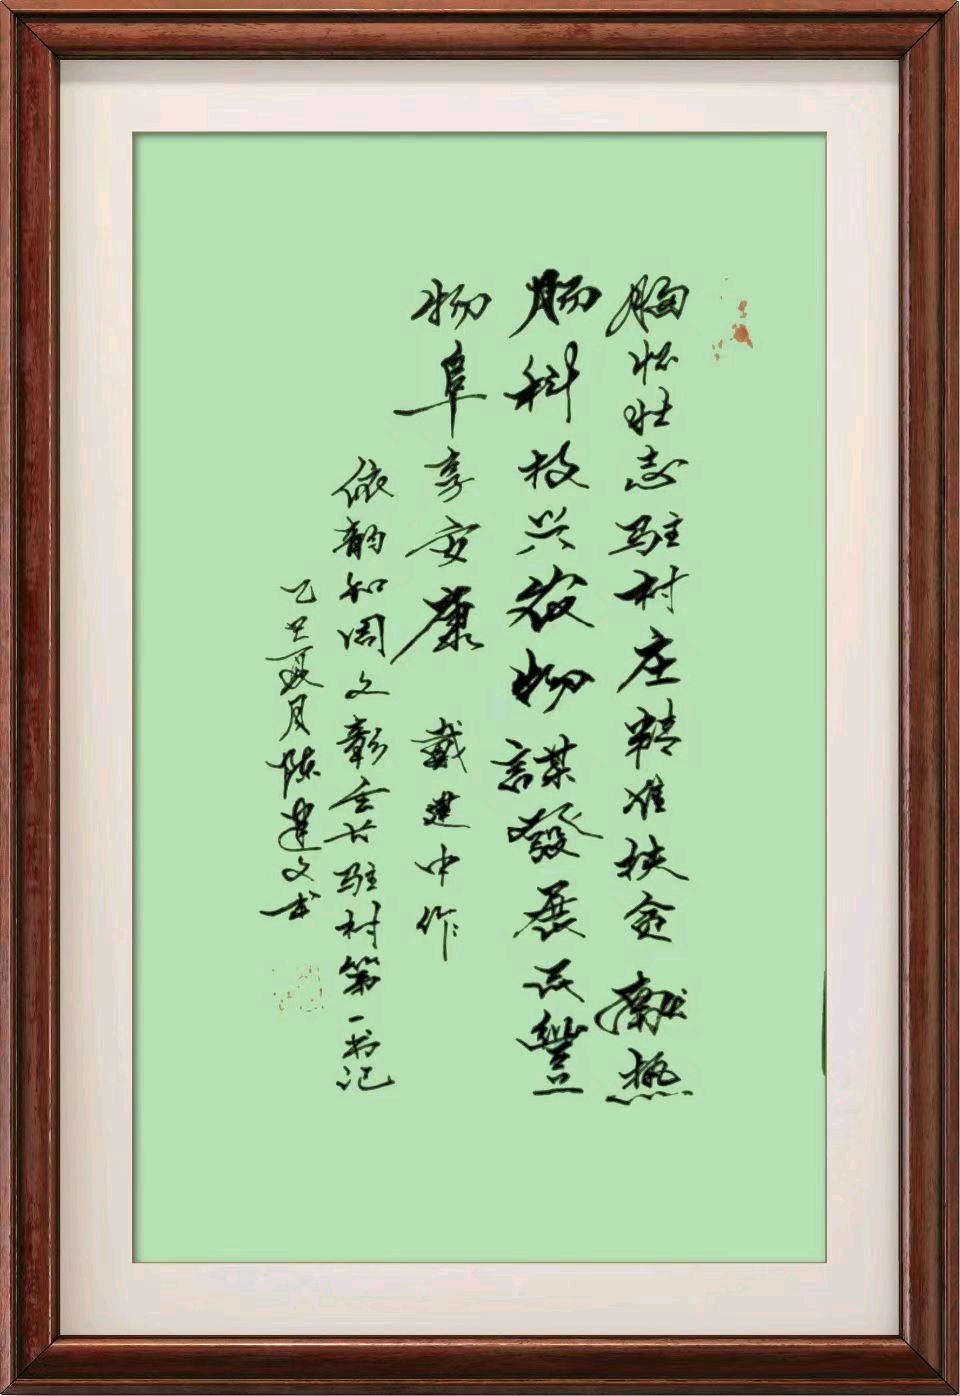 胸怀壮志驻村庄精准扶贫献热
肠科技兴农物謀發展民豐
物阜享安康 戴建中作
依韵和周文彰会长驻村第一书记
乙夏月陈建文书